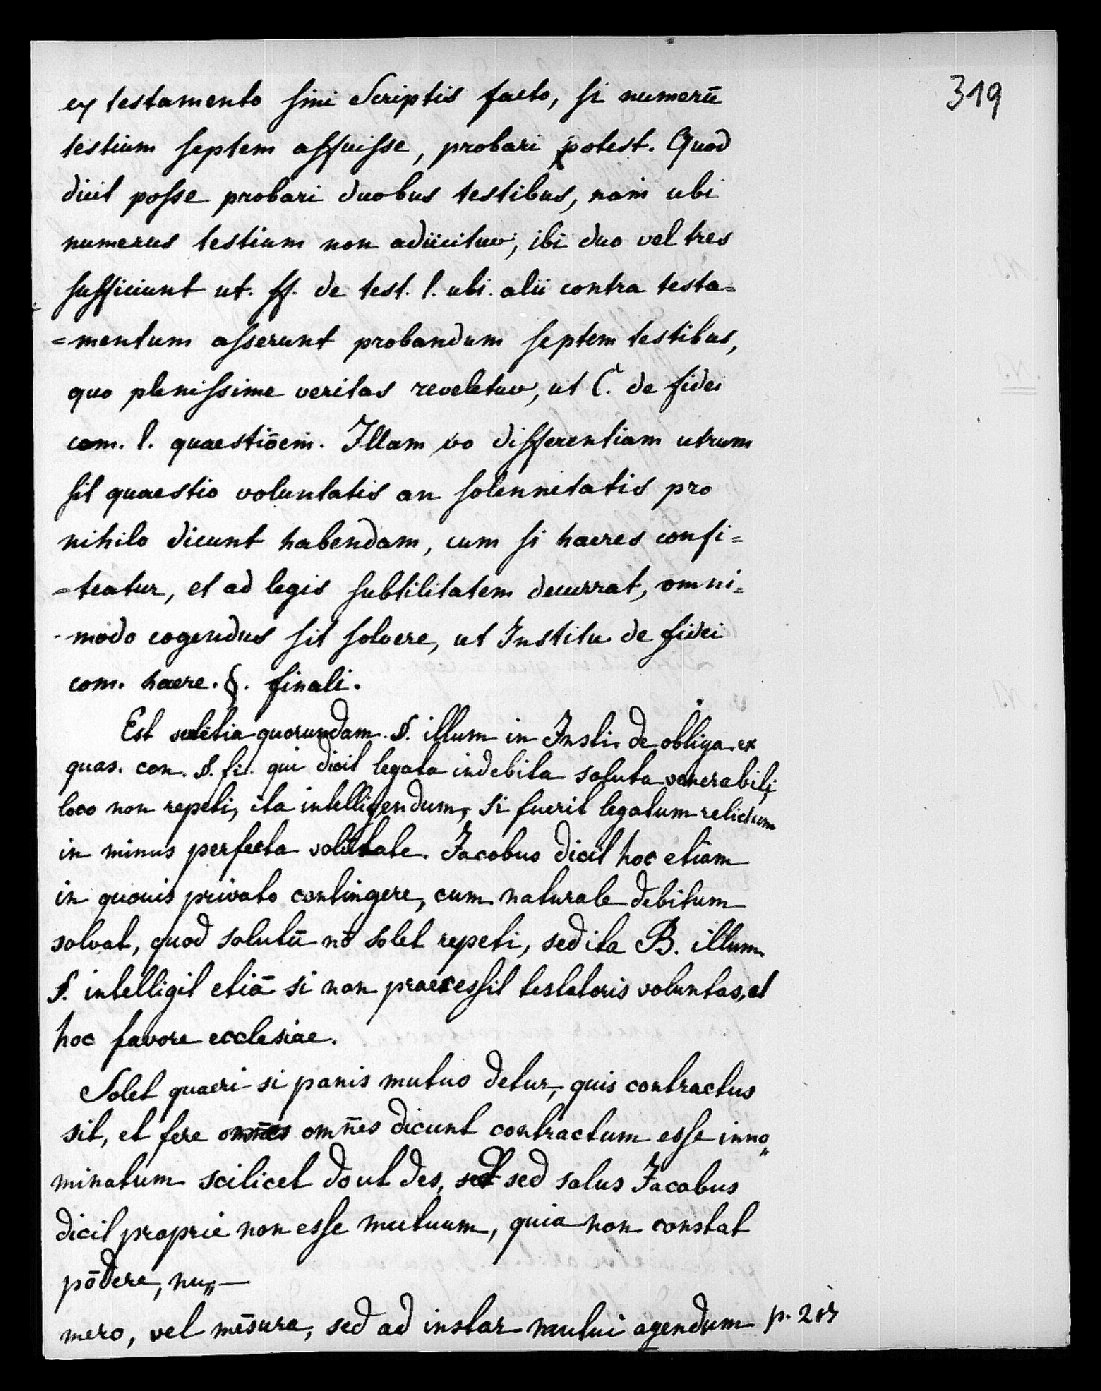 319
ex testamento sine Scriptis facto, si numerū
testium septem affuisse, probari potest. Quod
dicit posse probari duobus testibus, nam ubi
numerus testium non adiicitur, ibi duo vel tres
sufficiunt ut. ff. de test. l. ubi. alii contra testa=
=mentum asserunt probandum septem testibus,
quo plenissime veritas reveletur, ut C. de fidei
com. l. quaestiōem. Illam vo differentiam utrum
sit quaestio voluntatis an solennitatis pro
nihilo dicunt habendam, cum si haeres confi=
=teatur, et ad legis subtilitatem decurrat, omni=
-modo cogendus sit solvere, ut Institu de fidei
com. haere. §. finali.
Est sentētia quorundam. §. illum in Insti. de obliga. ex
quas. con. §. fi. qui dicit legata indebita soluta venerabili
loco non repeti, ita intelligendum, si fuerit legatum relictum
in minus perfecta volūtate. Jacobus dicit hoc etiam
in quovis privato contingere, cum naturale debitum
solvat, quod solutū nō solet repeti, sed ita B. illum
§. intelligit etiā si non praecessit testatoris voluntas, et
hoc favore ecclesiae.
Solet quaeri si panis mutuo detur, quis contractus
sit, et fere omn̄es dicunt contractum esse inno„
minatum scilicet do ut des, sed solus Jacobus
dicit proprie non esse mutuum, quia non constat
pōdere, nu„
mero, vel mēsura, sed ad instar mutui agendum p. 213